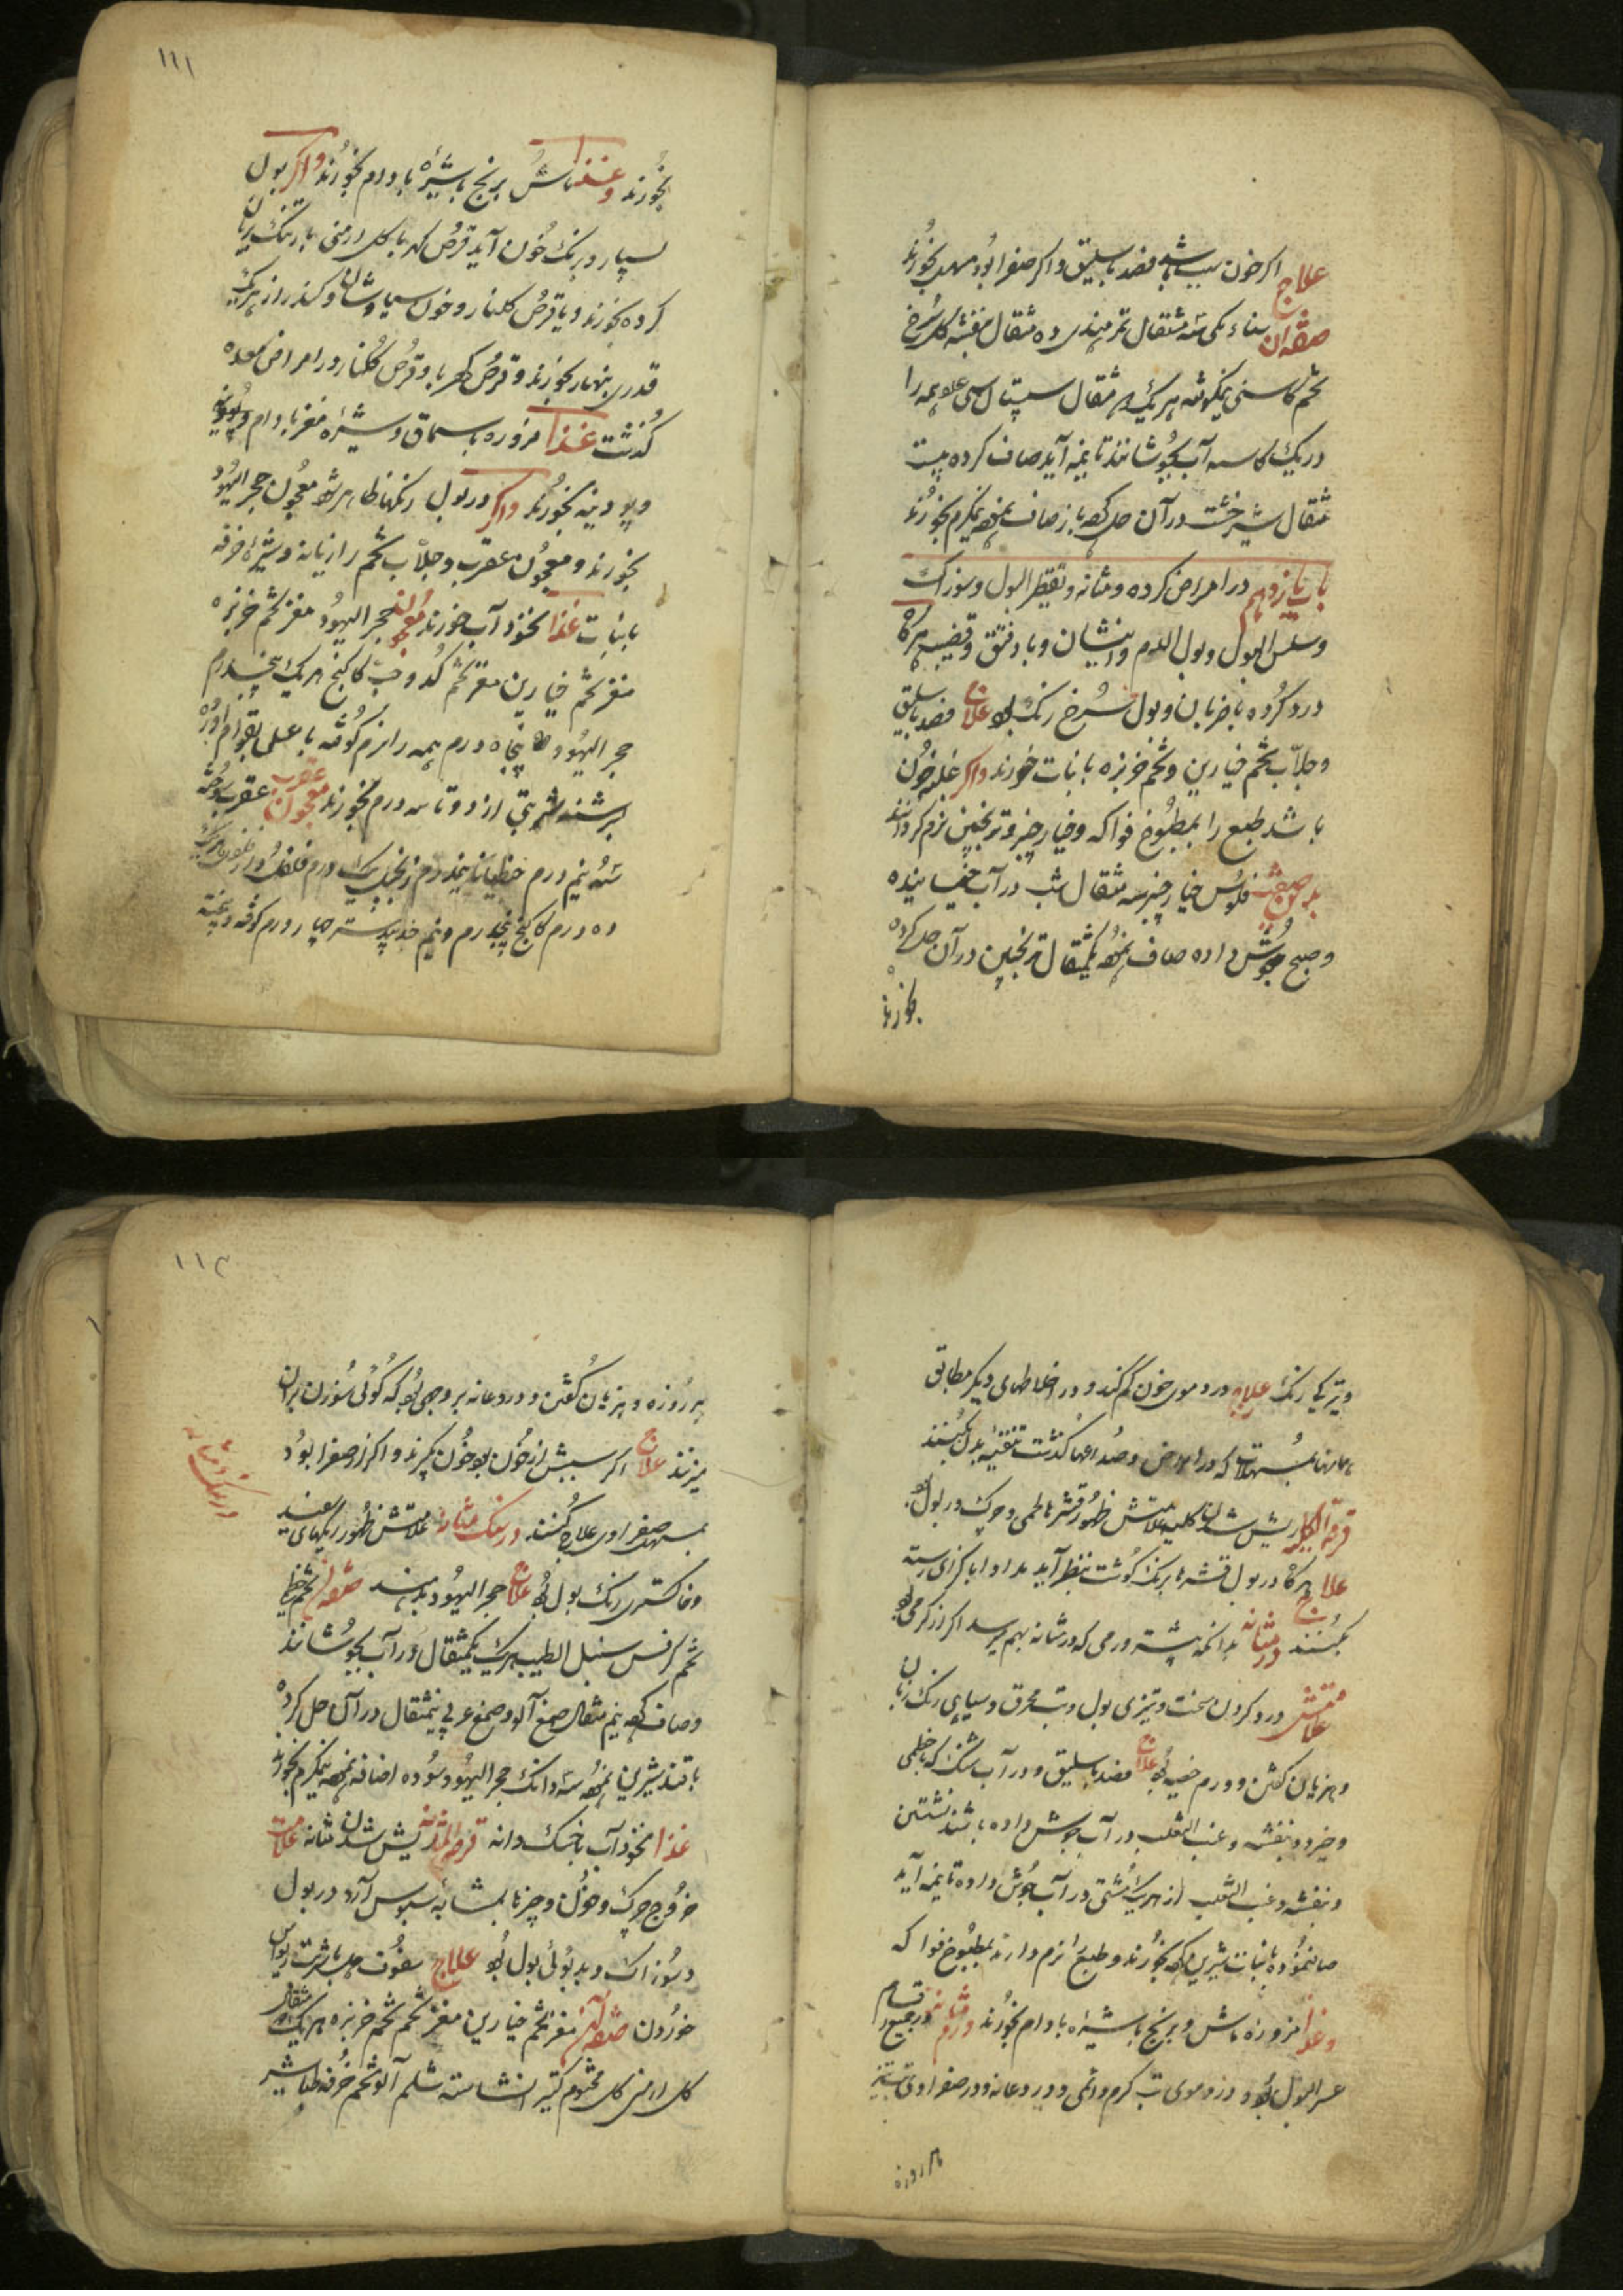 علاج اکر خون سبب باشد فصد باسلیق واکر صفرا بود مسهل بخورند
صفة آن سناء مکی سه مثقال تمر هندی ده مثقال بنفشه کل سرخ
تخم کاسنی نیمکوفته هر یک مثقال سپستان سی عدد همه را
در یک کاسه آب بجوشانند تا بنیمه آید صاف کرده بیست
مثقال شیرخشت در آن حل کرده باز صاف نموده نیم کرم بخورند
باب یازدهم در امراض کرده و مثانه و تقطیر البول و سوزاک
وسلس البول وبول الدم و انثیان و باد فتق و قضیب هرکاه
درد کرده با ضربان و بول سرخ رنک بود علاج فصد باسلیق
وجلاب تخم خیارین و تخم خربزه با نبات خورند واکر غلبه خون
باشد طبع را بمطبوخ فواکه و خیارچنبر و ترنجبین نرم کردانند
فلوس خیارچنبر سه مثقال شب در آب خیسانیده
وصبح جوش داده صاف نموده یکمثقال ترنجبین در آن حل کرده
بخورند
۱۱۱
بخورند وغذا ماش برنج با شیرهٔ بادام بخورند واکر بول
بسیار و برنک خون آید قرص کهربا کل ارمنی بارتنک بریان
کرده بخورند ویا قرص کلنار و خون سیاوشان و کندر از هر یک
قدری بنهار بخورند وقرص کهربا وقرص کلنار در امراض معده
کذشت غذا مزوره با سماق و شیرهٔ مغز بادام
و پودینه بخورند واکر در بول رنکها ظاهر شود معجون حجر الیهود
بخورند و معجون عقرب و جلاب تخم رازیانه و شیرهٔ خرفه
با نبات غذا نخود آب خورند معجون حجر الیهود مغز تخم خربزه
مغز تخم خیارین مغز تخم کدو حب کاکنج هر یک پنجدرم
حجر الیهود پنجاه درم همه را نرم کوفته با عسل بقوام آورده
بسرشند شربتی از دو تا سه درم بخورند معجون عقرب عقرب سوخته
سه نیم درم جنطیانا پنجدرم زنجبیل یک درم فلفل دار فلفل هر یک
ده درم کاکنج پنجدرم و نیم جندبیدستر چهار درم کوفته و پخته
و تیرکی رنک علاج در دموی خون کم کنند و در اخلاطهای دیکر مطابق
بمسهلات که در امراض و صداعها کذشت تنقیهٔ بدن کنند
قرحة الکلیه ریش شدن کلیه علامتش ظهور قشرهای لحمی و چرک در بول بود
علاج هرکاه در بول قشرها برنک کوشت بنظر آید مداوا
کنند ورم مثانه بدانکه بیشتر ورمی که در مثانه بهم میرسد اکر از کرمی بود
علامتش درد کردن سخت و تیزی بول و تب محرق و سیاهی رنک زبان
و هذیان کفتن و ورم خصیه بود علاج فصد باسلیق و در آب خشک که با خطمی
و خیرو و بنفشه و عنب الثعلب در آب جوش داده باشند نشستن
و بنفشه و عنب الثعلب از هر یک مشتی در آب جوش داده تا بنیمه آید
صاف نموده با نبات شیرین کرده بخورند و طبع را نرم دارند بمطبوخ فواکه
وغذا مزورهٔ ماش و برنج با شیرهٔ بادام بخورند ورم مثانه در جمیع اقسام
عسر البول بود و در دموی تب کرم دائمی و درد عانه و در صفراوی تب تیز
هر روزه
۱۱۲
هر روزه و هذیان کفتن و درد عانه بر وجهی بود که کوئی سوزن بر آن
میزنند علاج اکر سببش از خون بود خون بکیرند و اکر از صفرا بود
بمسهل صفراوی علاج کنند در سنک مثانه علامتش ظهور ریکهای سفید
در سنک مثانه
و خاکستری رنک بول بود علاج حجر الیهود بدهند صفة آن تخم خطمی
تخم کرفس سنبل الطیب هر یک یکمثقال در آب بجوشانند
و صاف کرده نیم مثقال صمغ آلو و صمغ عربی نیمثقال در آن حل کرده
با قند شیرین نموده سه دانک حجر الیهود سوده اضافه نموده نیمکرم بخورند
غذا نخود آب با خسک دانه قرحة المثانه ریش شدن مثانه علامت
خروج چرک و خون و چیزها بمشابهٔ سبوس آرد در بول
و سوزاک و بدبوئی بول بود علاج سفوف حب با شربت ریواس
خوردن صفة آن مغز تخم خیارین مغز تخم خربزه هر یک مثقال
کل ارمنی کل مختوم کتیرا نشاسته شلم آلو تخم خرفه طباشیر